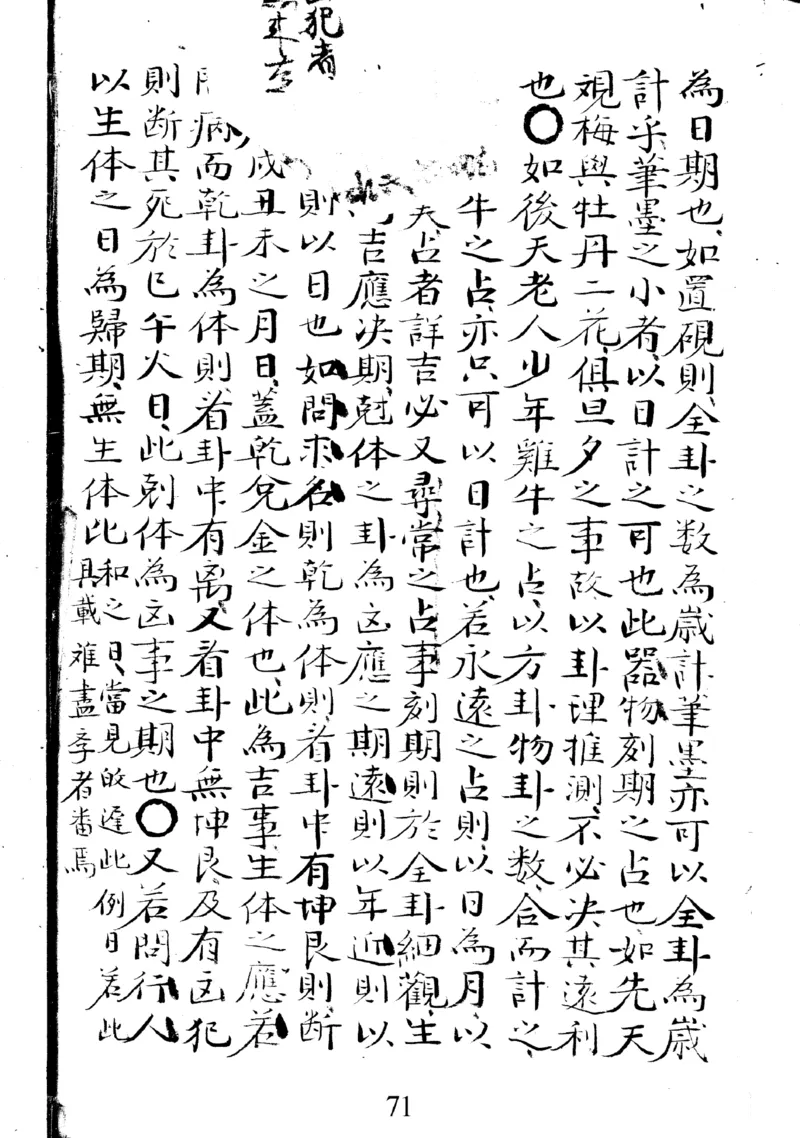 為日期也、如置硯則、全卦之数為嵗計筆墨亦可以全卦為嵗
計乎、筆墨之小者、以日計之可也此器物刻期之占也、如先天
覌梅與牡丹二花、俱旦夕之事故以卦理推測、不必决其遠利
也〇如後天老人少年雞牛之占、以方卦物卦之数、合而計之、
牛之占、亦只可以日計也、若永遠之占則、以日為月、以
夫占者詳吉必又尋常之占事刻期則於全卦細觀、生
吉應决期、尅体之卦為凶應之期遠則以年近則以
則以日也如問求名則乾為体則、看卦中有坤艮則、断
戌丑未之月日、蓋乾兌金之体也、此為吉事、生体之應若
病而乾卦為体則看卦中有离、又看卦中無坤艮、及有凶犯
則断其死於巳午火日、此剋体為凶事之期也〇又若問行人
以生体之日為歸期、無生体比和之日、當見的遲此例日若此
具載难盡李者畨焉
犯者